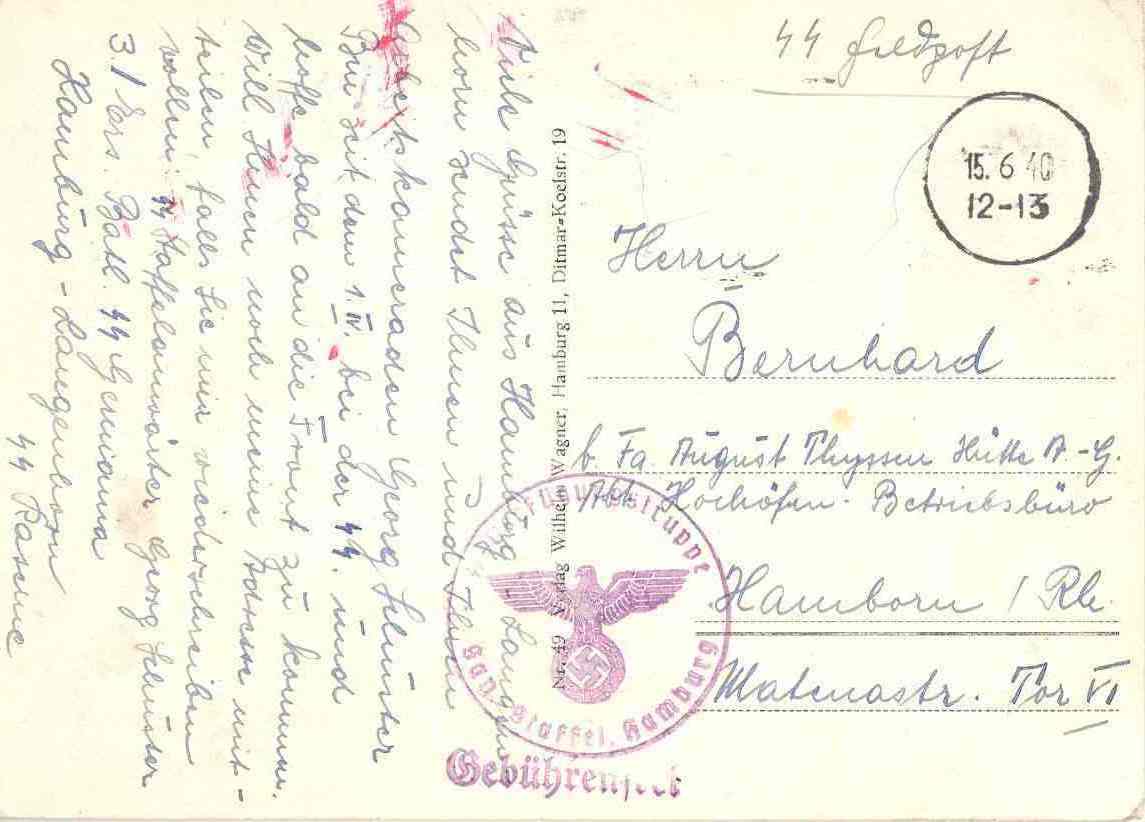 Viele Grüsse aus Hamburg-Langen-
horn sendet Ihnen und Ihren
Arbeitskameraden Georg Schuster
Bin seit dem 1. IV. bei der SS. und
hoffe bald an die Front zu kommen.
Will Ihnen noch meine Adresse mit-
teilen, falls Sie mir wiederschreiben
wollen: SS Staffelanwärter Georg Schuster
3./ Ers. Batl. SS Germania
Hamburg-Langenhorn
SS Kaserne
Nr. 49 Verlag Wilhelm Wagner, Hamburg 11, Ditmar-Koelstr. 19
SS Feldpost
15. 6 40
12-13
Herrn
Bernhard
b. Fa. August Thyssen Hütte A.-G.
Abt. Hochöfen - Betriebsbüro
Hamborn / Rh.
Matenastr. Tor VI
Verfügungstruppe
San. Staffel, Hamburg